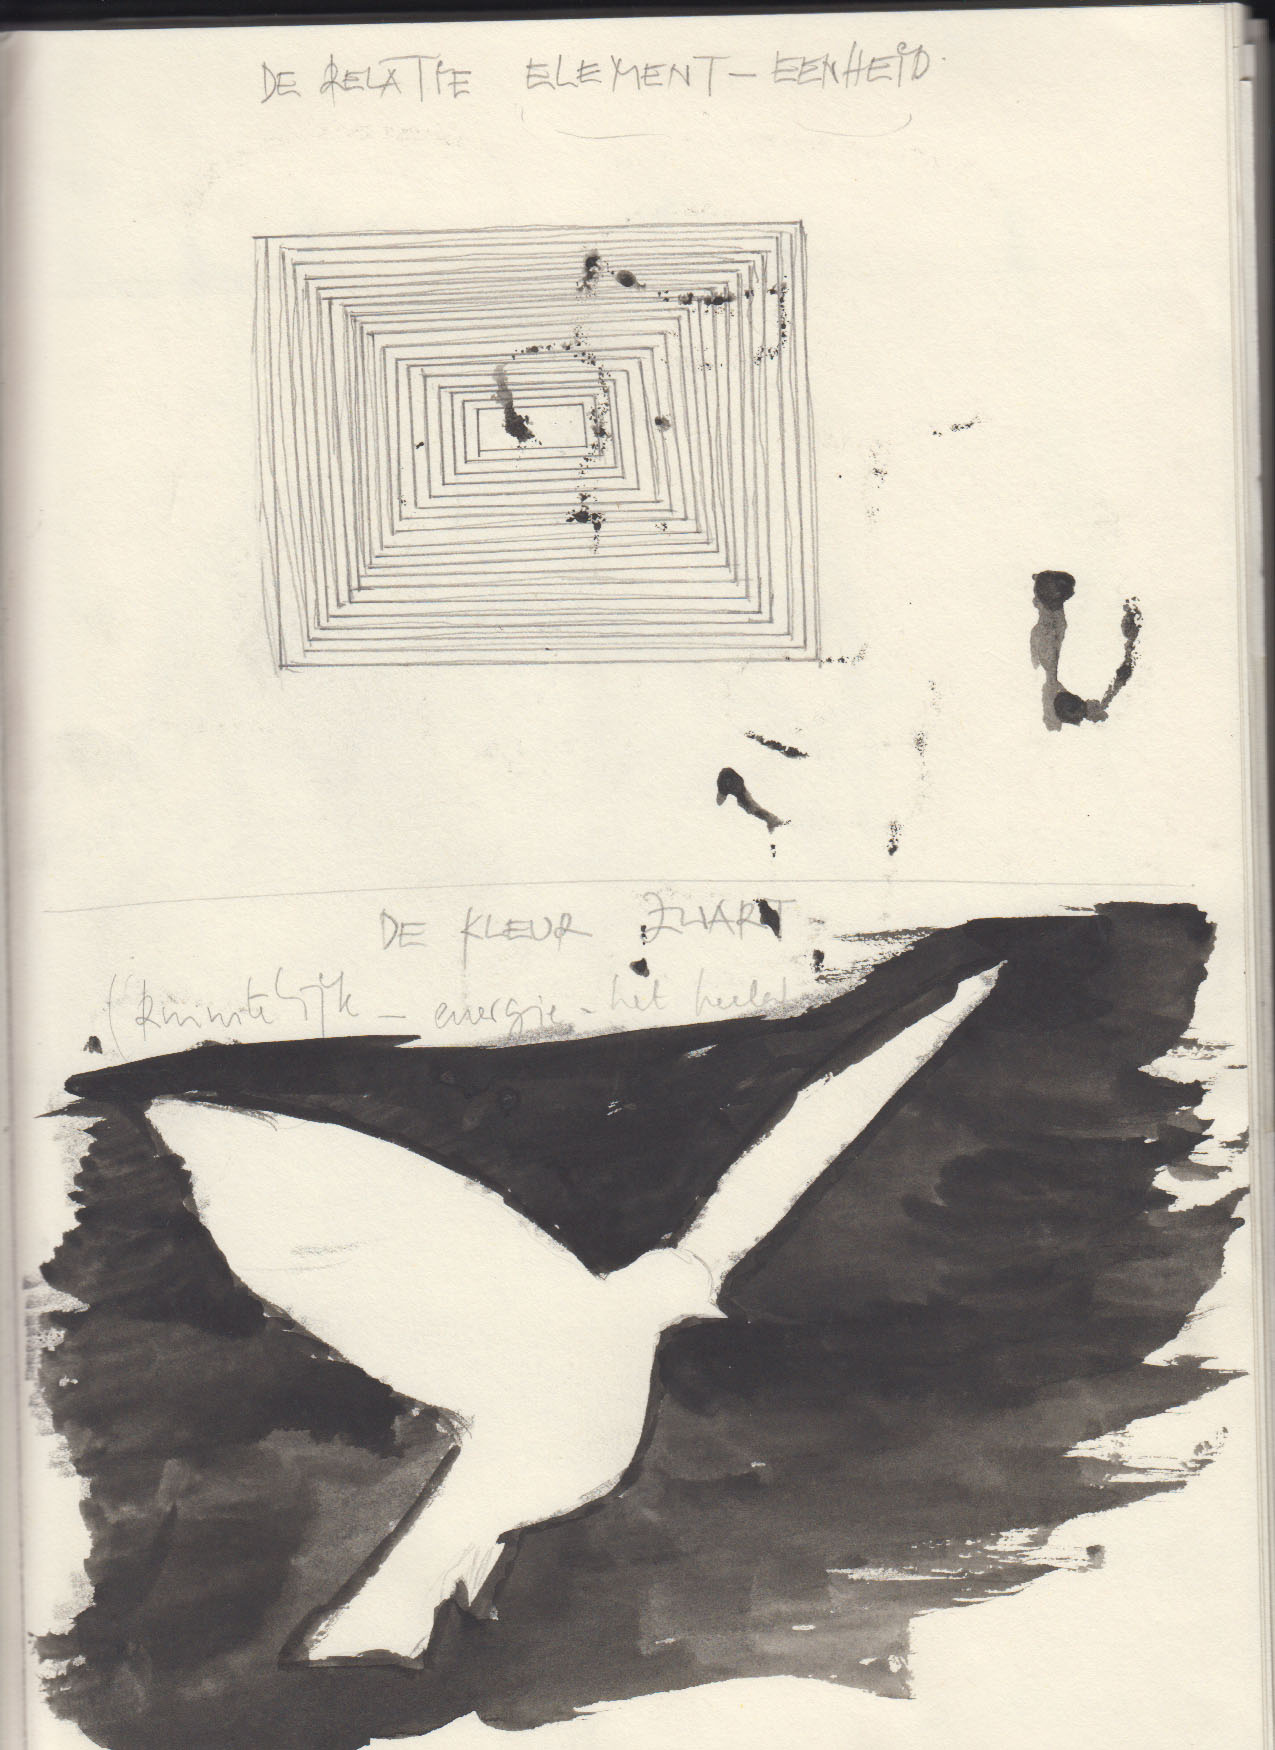 DE RELATIE ELEMENT – EENHEID.
DE KLEUR ZWART
(Ruimtelijk – energie – het heelal